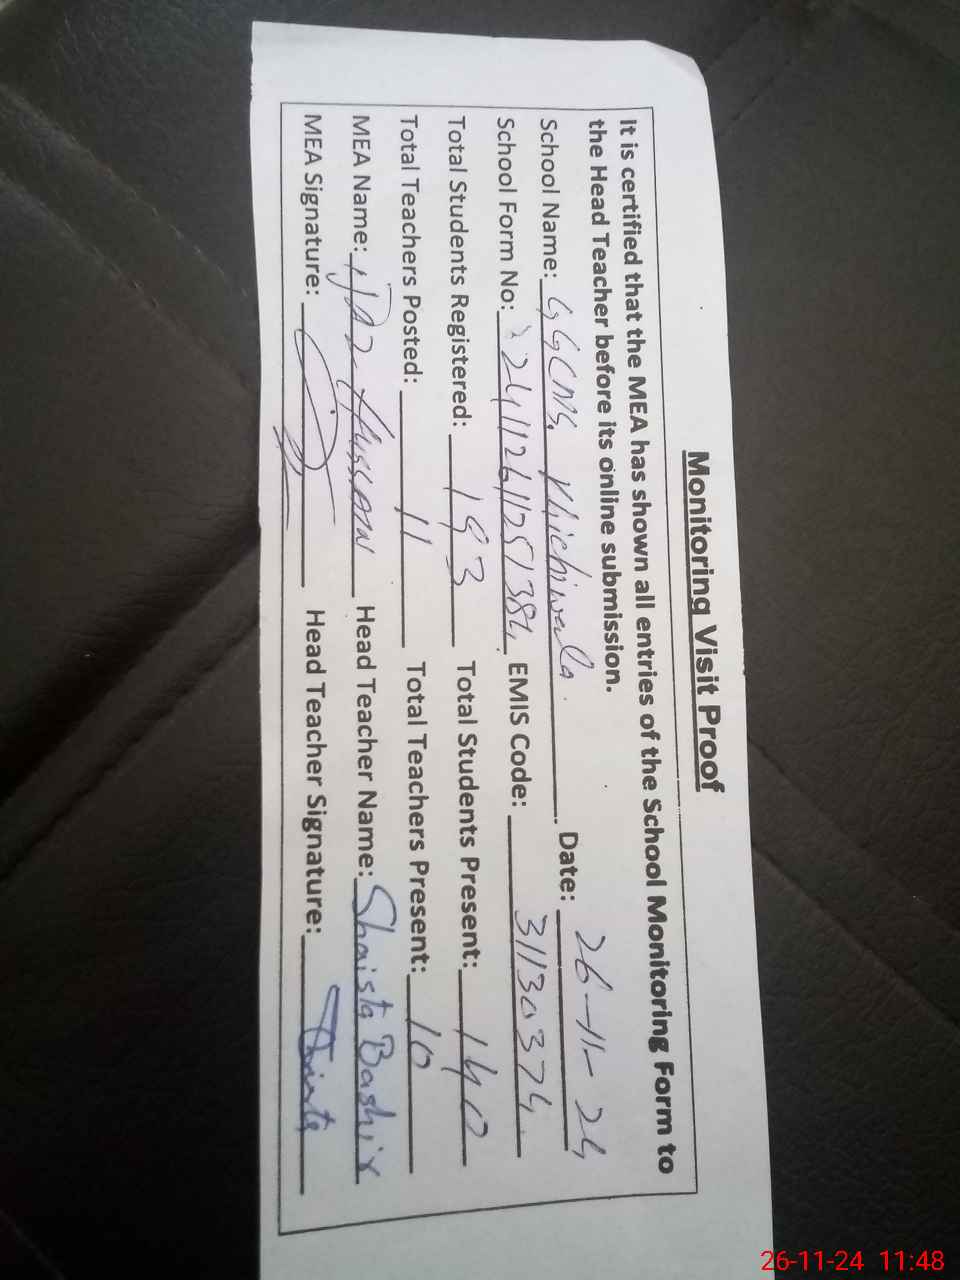 Monitoring Visit Proof
It is certified that the MEA has shown all entries of the School Monitoring Form to
the Head Teacher before its online submission.
School Name: GGCMS, Khichiwala. Date: 26-11-24
School Form No: 24112611251384 EMIS Code: 31130374
Total Students Registered: 193 Total Students Present: 140
Total Teachers Posted: 11 Total Teachers Present: 10
MEA Name: IJAZ Hussain Head Teacher Name: Shaista Bashir
MEA Signature: Head Teacher Signature:
26-11-24 11:48